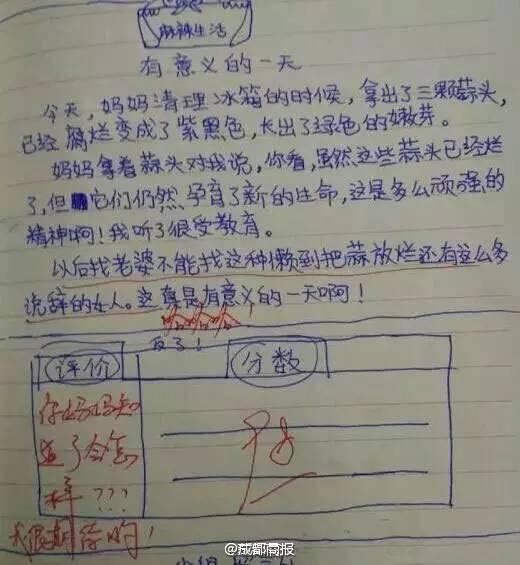 麻辣生活
有意义的一天
今天，妈妈清理冰箱的时候，拿出了三颗蒜头，
已经腐烂变成了紫黑色，长出了绿色的嫩芽。
妈妈拿着蒜头对我说，你看，虽然这些蒜头已经烂
了，但它们仍然孕育了新的生命，这是多么顽强的
精神啊！我听了很受教育。
以后找老婆不能找这种懒到把蒜放烂还有这么多
说辞的女人。这真是有意义的一天啊！
哈哈哈
评价
分数
你妈妈知
道了会怎
样???
我很期待哟！
优
@成都商报